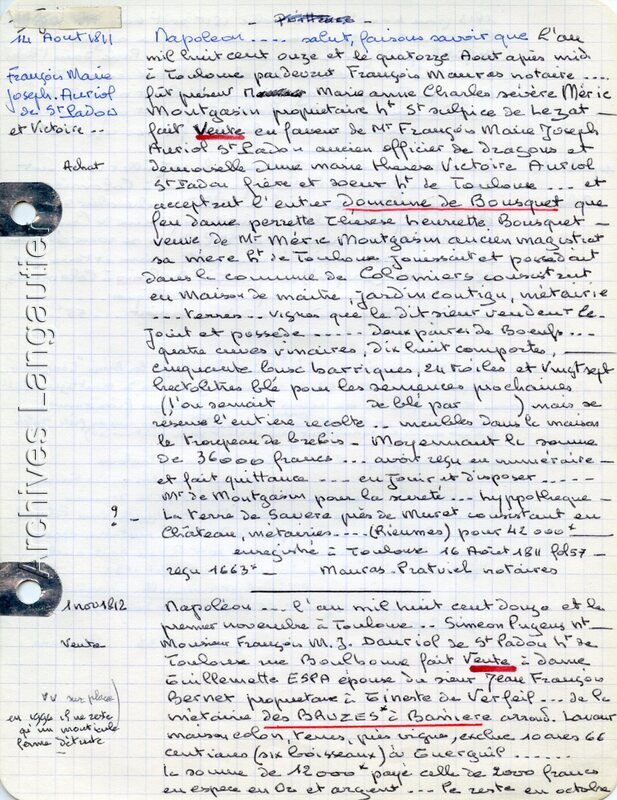 14 Aout 1811
François Marie
Joseph. Auriol
de St Sadou
et Victoire --
Achat
Napoléon .... salut, faisons savoir que l'an
mil huit cent onze et le quatorze Aout après midi
à Toulouse pardevant François Mauras notaire ....
fût présent Marie anne Charles Méric
Montgasin propriétaire ht St sulpice de Lezat -
fait Vente en faveur de Mr François Marie Joseph
Auriol St Sadou ancien officier de dragons et
demoiselle Anne marie therese Victoire Auriol
St Sadou frère et soeur ht de Toulouse ... et
acceptant l'entier Domaine de Bousquet que
feu dame perrette Thérèse henriette Bousquet -
veuve de Mr Méric Montgasin ancien magistrat
sa mère ht de Toulouse jouissait et possédait
dans la commune de Colomiers consistant
en Maison de maitre, jardin contigu, métairie
... terres .. vignes que le dit sieur vendeur le
jouit et possede ..... deux paires de Boeufs ...
quatre cuves vinaires, dix huit comportes,
cinquante busc barriques, 24 toiles et vingt sept
hectolitres blé pour les semences prochaines
(l'on semait de blé par ) mais se
réserve l'entiere recolte .. meubles dans la maison
le troupeau de brebis - Moyennant la somme
de 36000 francs ... avoir reçu en numéraire -
et fait quittance .... en jouir et disposer .....
Mr de Montgasin pour la sureté ... hyppotheque -
? -
La terre de Savère près de Muret consistant en
Château, metairies .... (Rieumes) pour 42000
enregistré à Toulouse 16 Aout 1811 fol 57 -
reçu 1663 Mauras - Pratviel notaires
Archives Langautier
1 nov 1812
Vente
vu sur place
en 1994 il ne reste
qu'un monticule
ferme détruite
Napoléon ... l'an mil huit cent douze et le
premier novembre à Toulouse .. Simeon Pugens nt -
Monsieur François M. J. Dauriol de St Sadou ht de
Toulouse rue Boulbonne fait Vente à dame
Guillemette ESPA épouse du sieur Jean François
Bernet propriétaire à Gineste de Verfeil ... de la
métairie des BAUZES à Banière arrond. Lavaur
maison colon terres, près vigne, exclue 10 ares 66
centiares (six boisseaux) à ......
la somme de 12000 payé celle de 2000 francs
en espece en Or et argent ... Le reste en octobre